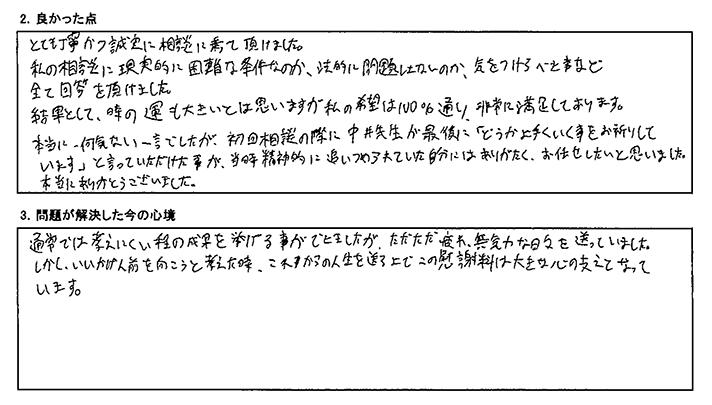 2. 良かった点
とても丁寧かつ誠実に相談に乗って頂けました。
私の相談に現実的に困難な条件なのか、法的に問題はないのか、気をつけるべき事など
全て回答を頂けました。
結果として、時の運も大きいとは思いますが私の希望は100%通り、非常に満足しております。
本当に一何気ない一言でしたが、初回相談の際に中井先生が最後に「どうか上手くいく事をお祈りして
います」と言っていただけた事が、当時精神的に追いつめられていた自分にはありがたく、お任せしたいと思いました。
本当にありがとうございました。
3. 問題が解決した今の心境
通常では考えにくい程の成果を挙げる事ができましたが、ただただ疲れ、無気力な日々を送っていました。
しかし、いいかげん前を向こうと考えた時、これからの人生を送る上でこの慰謝料は大きな心の支えとなって
います。